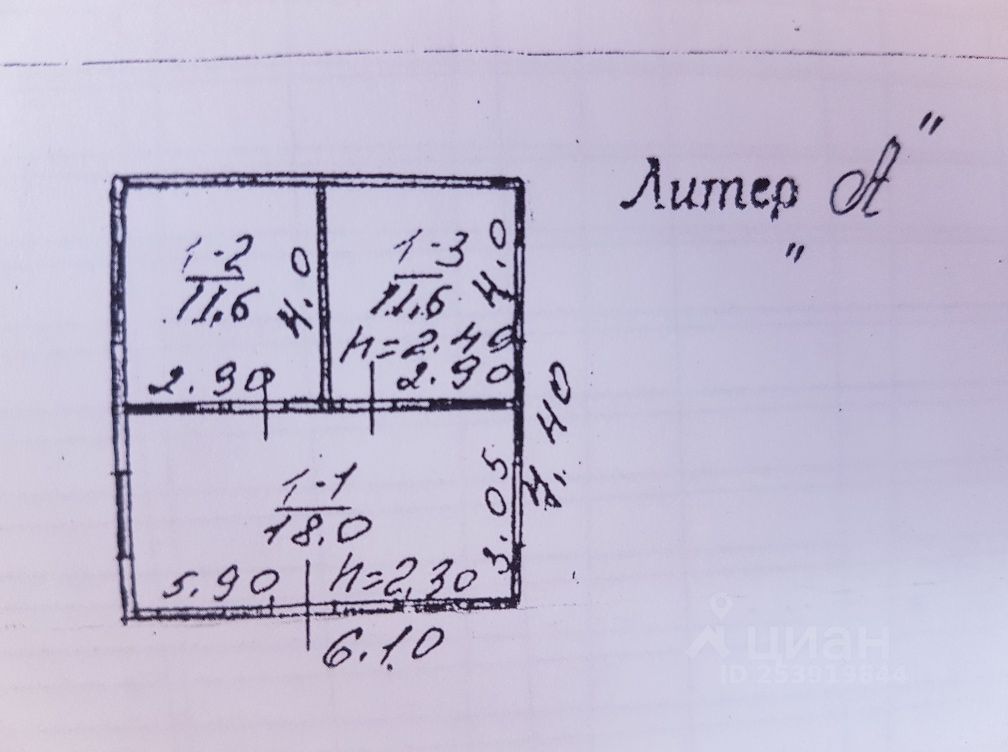 Литер "А"
"
1-2
11,6
4.0
2.90
1-3
11,6
4.0
h=2.40
2.90
7.40
1-1
18.0
3.05
5.90
h=2,30
6.10
циан
ID 253919844